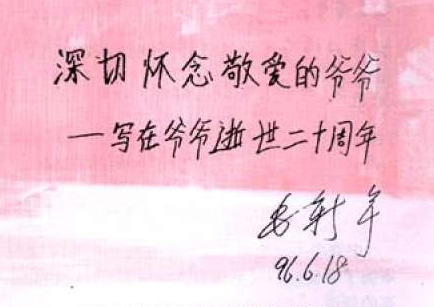 深切怀念敬爱的爷爷
—写在爷爷逝世二十周年
96.6.18